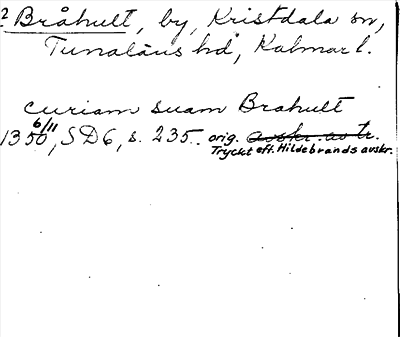 2 Bråhult, by, Kristdala sn,
Tunaläns hd, Kalmar l.
curiam suam Brahult
1350 6/11, SD 6, s. 235. orig. avskr. av tr.
Tryckt eft. Hildebrands avskr.